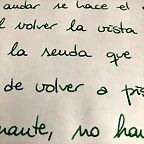 andar se hace el
l volver la vista
la senda que
de volver a pis
nante, no hay